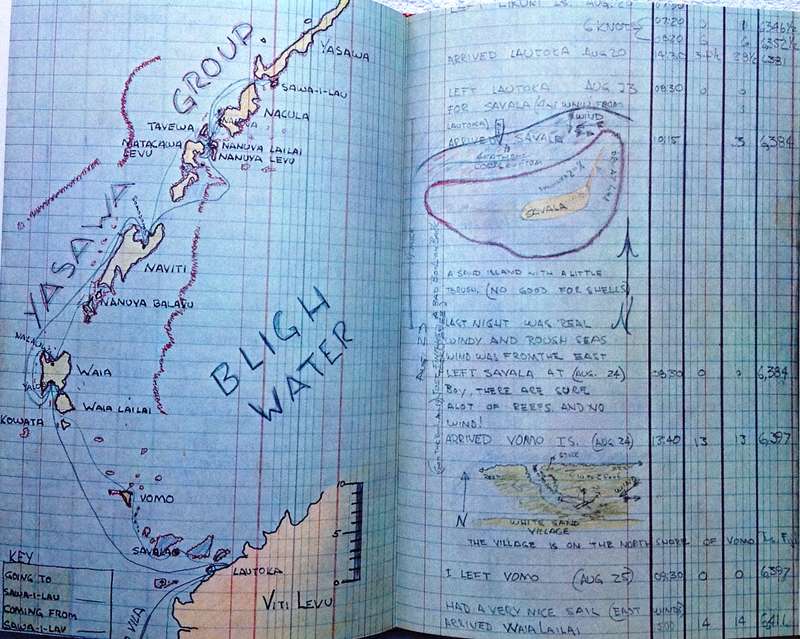 GROUP
YASAWA
SAWA-I-LAU
NACULA
TAVEWA
MATACAWA
LEVU
NANUYA LAILAI
NANUYA LEVU
YASAWA
NAVITI
NANUYA BALAVU
BLIGH
WATER
WAIA
WAIA LAILAI
KOWATA
VOMO
SAVALA
LAUTOKA
VITI LEVU
VILA
10
5
0
KEY
GOING TO
SAWA-I-LAU
COMING FROM
SAWA-I-LAU
LEFT LIKURI IS. AUG. 20
6 KNOTS 07:20 0 1 6346½
08:20 6 6 6352½
ARRIVED LAUTOKA AUG 20 14:30 34½ 6381
LEFT LAUTOKA AUG 23 08:30 0 0
FOR SAVALA (DOWNWIND FROM
LAUTOKA)
WIND
ARRIVED SAVALA 3 6,384
SAVALA
A SAND ISLAND WITH A LITTLE
(NO GOOD FOR SHELLS)
N
AUG 23
LAST NIGHT WAS REAL
WINDY AND ROUGH SEAS
WIND WAS FROM THE EAST
LEFT SAVALA AT (AUG. 24) 08:30 0 0 6,384
BOY, THERE ARE SURE
ALOT OF REEFS AND NO
WIND!
ARRIVED VOMO IS. (AUG 24) 13:40 13 13 6,397
WIND
N
WHITE SAND
VILLAGE
THE VILLAGE IS ON THE NORTH SHORE OF VOMO IS. FIJI
I LEFT VOMO (AUG 25) 09:30 0 0 6397
HAD A VERY NICE SAIL (EAST WIND)
ARRIVED WAIA LAILAI 14 14 6,411